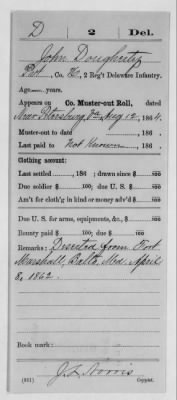 D 2 Del.
John Dougherty
Pvt., Co. K, 2 Reg't Delaware Infantry.
Age years.
Appears on Co. Muster-out Roll, dated
Near Petersburg Va. Aug 12, 1864.
Muster-out to date , 186 .
Last paid to Not Known , 186 .
Clothing account:
Last settled , 186 ; drawn since $ 100
Due soldier $ 100; due U. S. $ 100
Am't for cloth'g in kind or money adv'd $ 100
Due U. S. for arms, equipments, &c., $ 100
Bounty paid $ 100; due $ 100
Remarks: Deserted from Fort
Marshall, Balto. Md. April
8, 1862.
Book mark:
J. L. Norris
(331) Copyist.